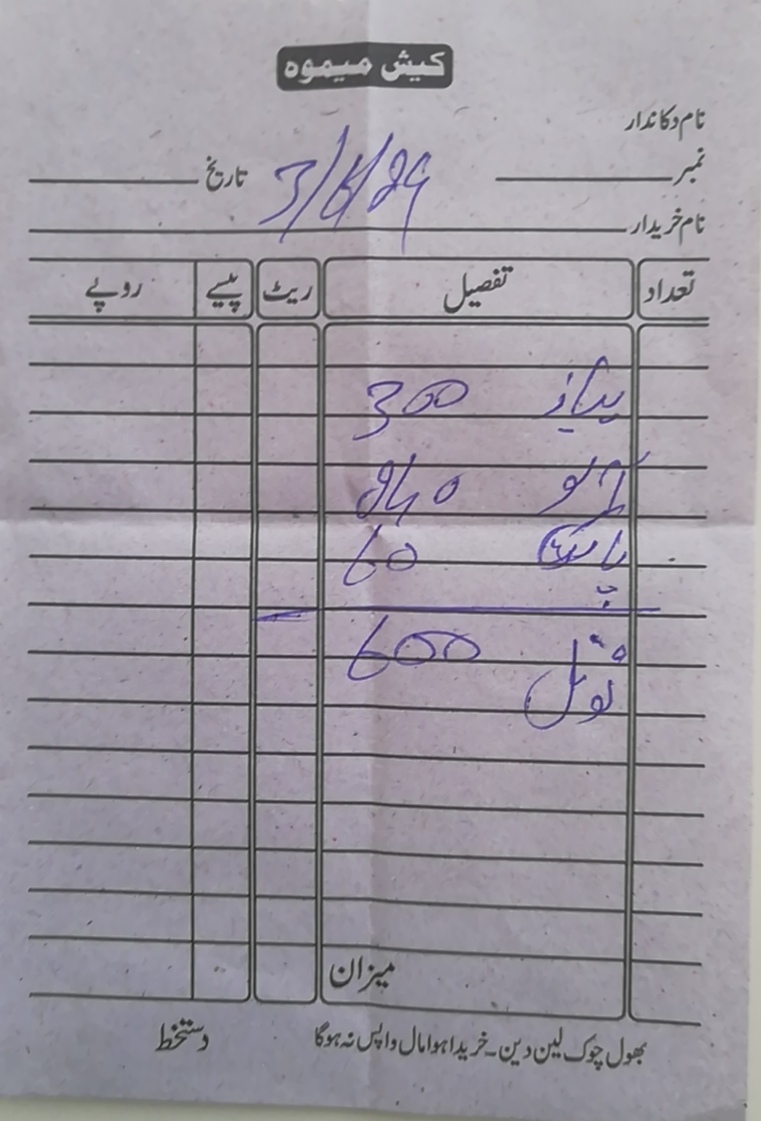 کیش میموہ
نام دکاندار
نمبر تاریخ
3/6/24
نام خریدار
تعداد تفصیل ریٹ پیسے روپے
پیاز 300
240
60
ٹوٹل 600
میزان
بھول چوک لین دین۔ خریدا ہوا مال واپس نہ ہوگا
دستخط